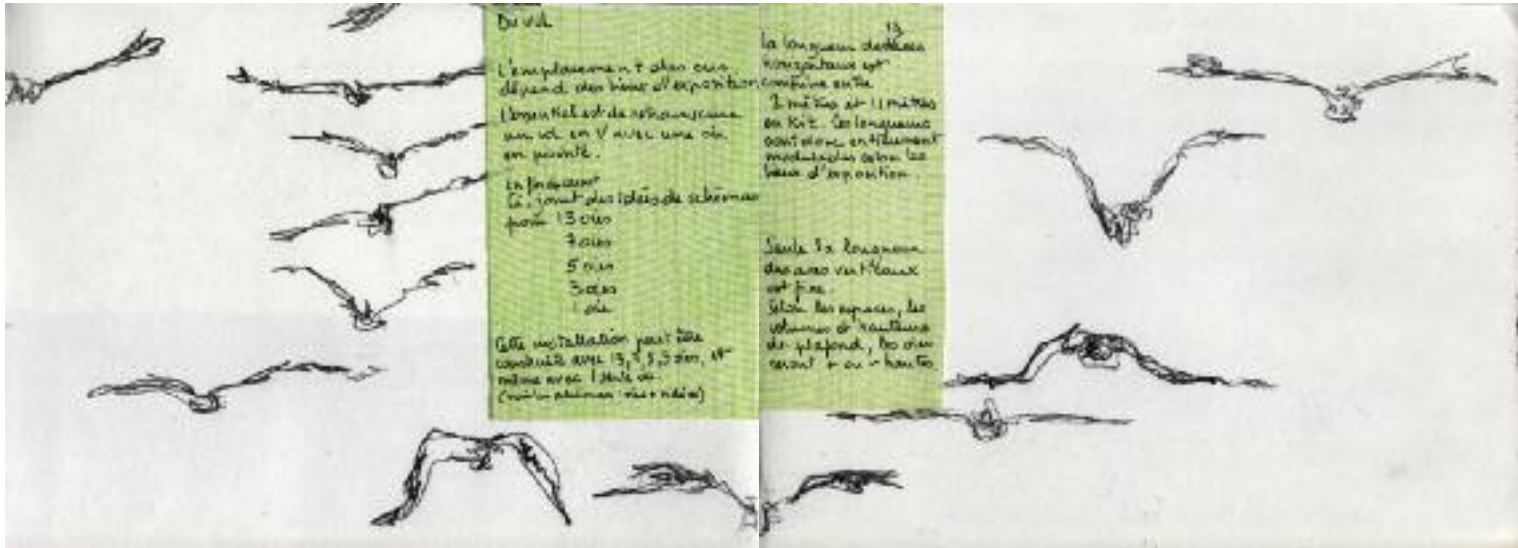 Du vol
L'emplacement des oies
dépend des lieux d'exposition
L'essentiel est de retranscrire
un vol en V avec une oie
en pointe.
sont des idées de schémas
pour 13 oies
7 oies
5 oies
3 oies
1 oie
Cette installation peut être
construite avec 13, 7, 5, 3 oies, et
même avec 1 seule oie.
13
la longueur des axes
horizontaux est
comprise entre
2 mètres et 11 mètres
en Kit. Ces longueurs
sont donc entièrement
modulables selon les
lieux d'exposition.
Seule la longueur
des axes verticaux
est fixe.
Selon les espaces, les
volumes et hauteurs
de plafond, les oies
seront + ou - hautes